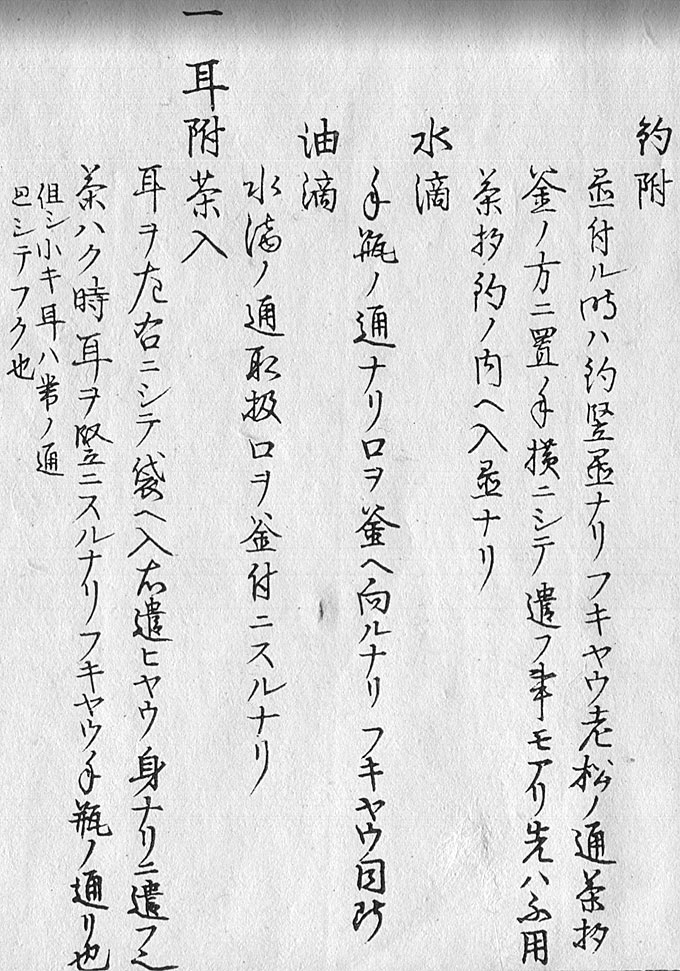 釣附
置付ル時ハ釣竪置ナリフキヤウ老松ノ通茶抄
釜ノ方ニ置ノ手横ニシテ遣フ事モアリ先ハ不用
茶抄釣ノ内ヘ入置ナリ
水滴
手瓶ノ通ナリ口ヲ釜ヘ向ルナリフキヤウ同断
油滴
水滴ノ通取扱口ヲ釜付ニスルナリ
一耳附茶入
耳ヲ左右ニシテ袋ヘ入右遣ヒヤウ身ナリニ遣フ之
茶ハク時耳ヲ竪ニスルナリフキヤウ手瓶ノ通リ也
但シ小キ耳ハ常ノ通
巴シテフク也